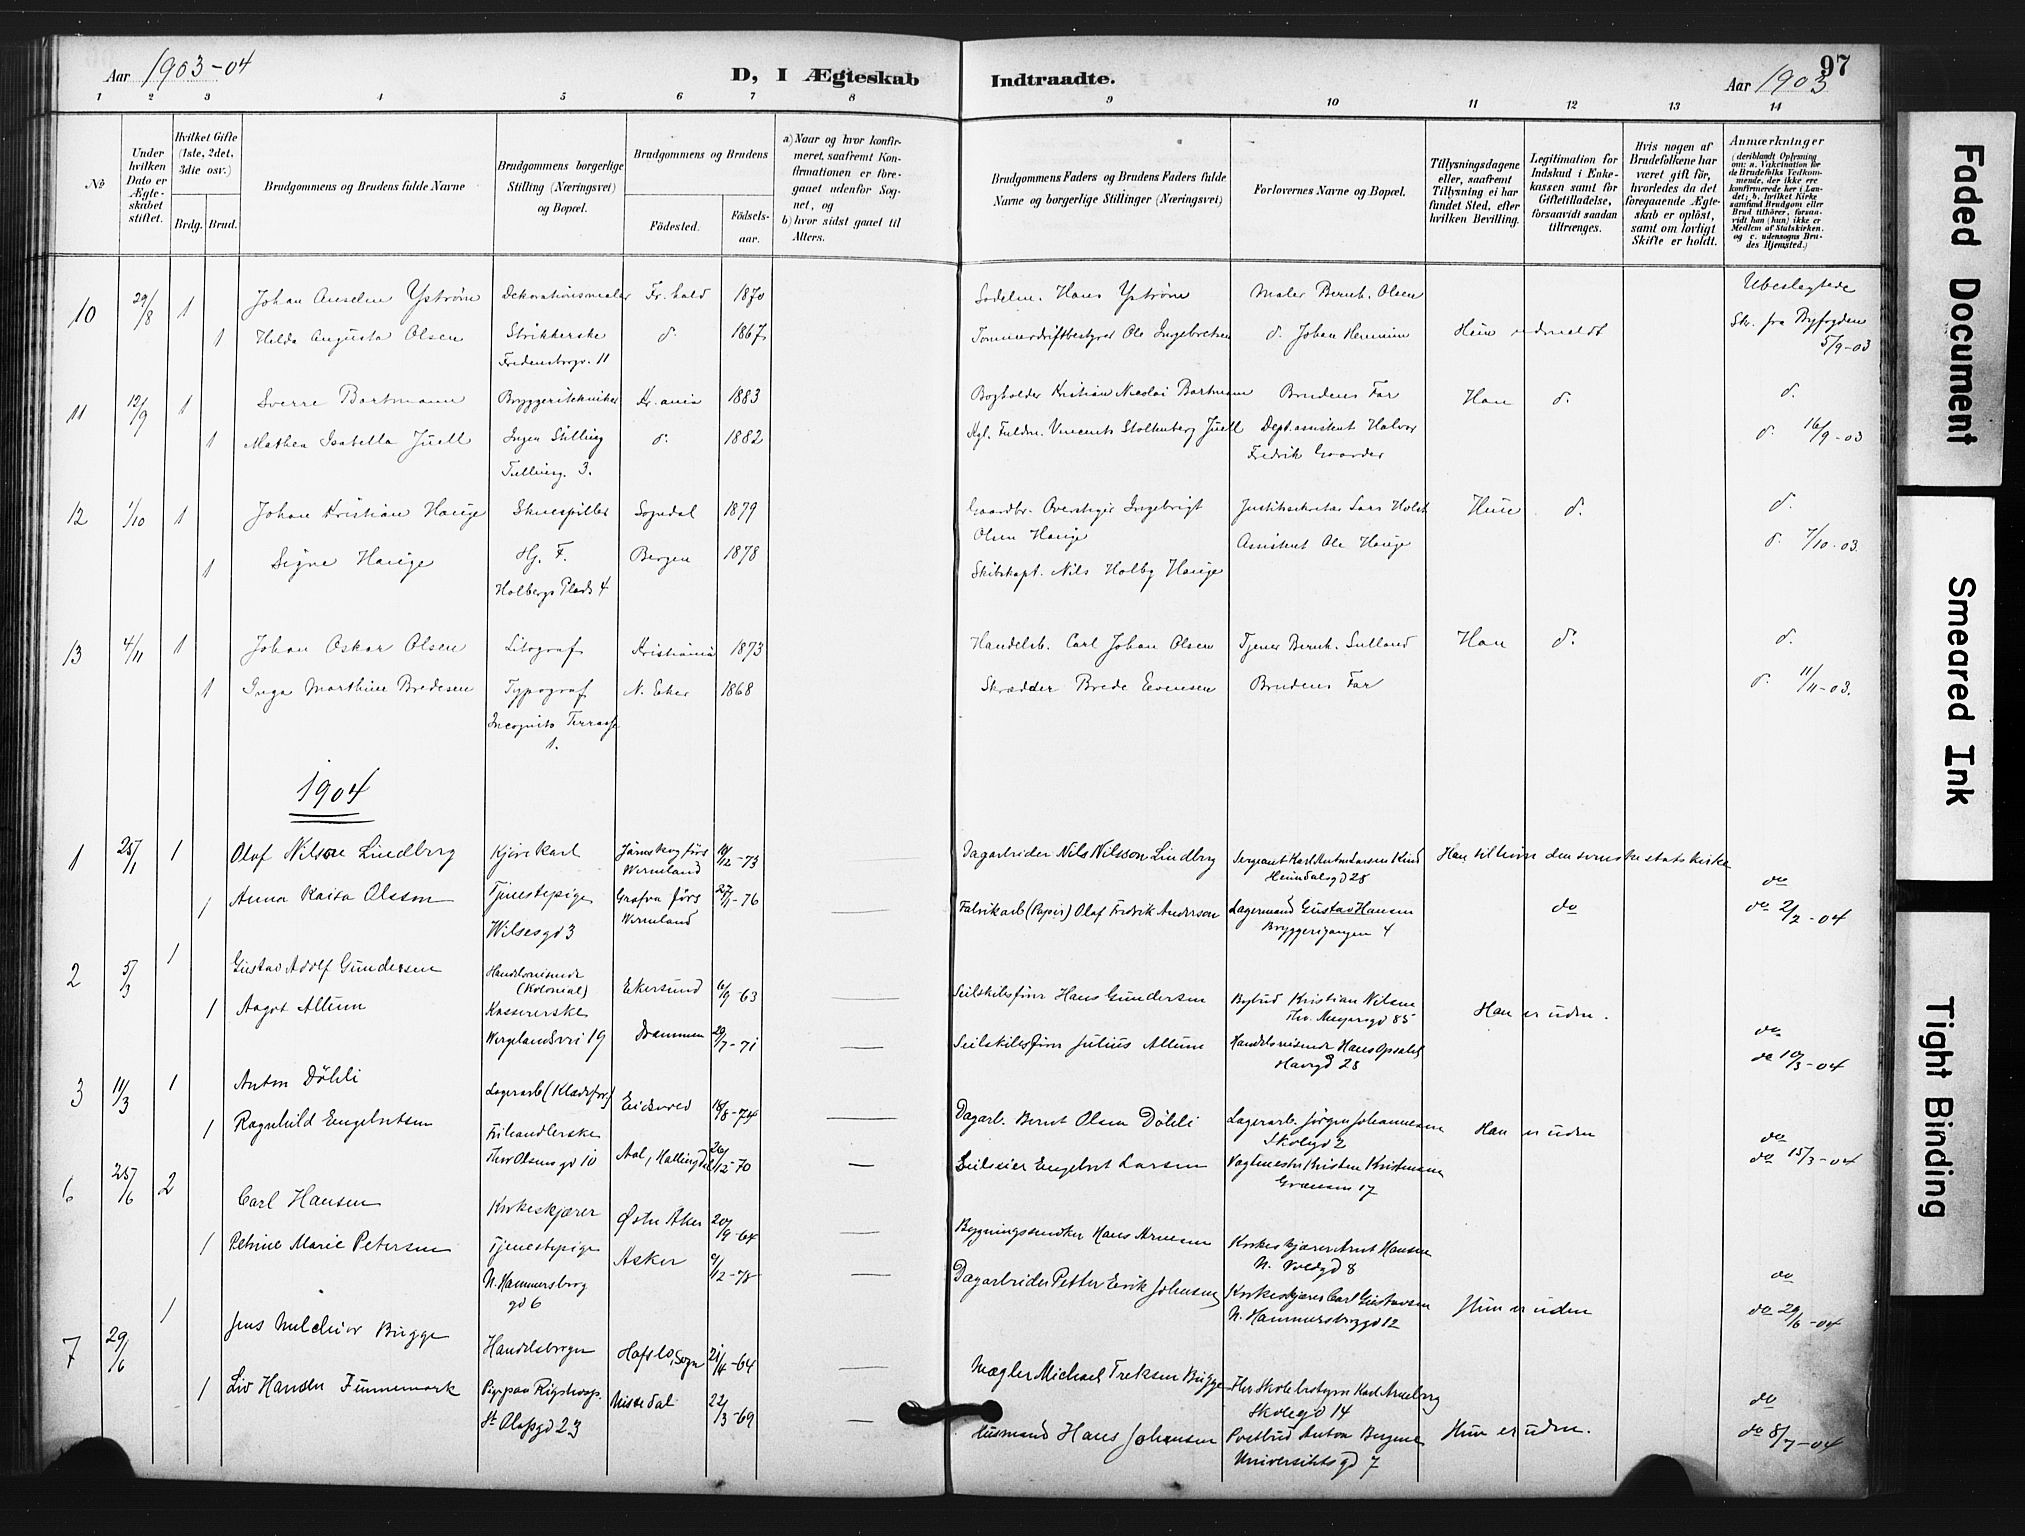 Aar 1903-04
D, I Ægteskab Indtraadte.
Aar 1903
97
1 2 3 4 5 6 7 8 9 10 11 12 13 14
No
Under hvilken Dato er Ægteskabet stiftet.
Hvilket Gifte (1ste, 2det, 3die osv.)
Brdg. Brud.
Brudgommens og Brudens fulde Navne
Brudgommens borgerlige Stilling (Næringsvei) og Bopæl.
Brudgommens og Brudens
Födested. Födselsaar.
a) Naar og hvor konfirmeret, saafremt Konfirmationen er foregaaet udenfor Sognet, og
b) hvor sidst gaaet til Alters.
Brudgommens Faders og Brudens Faders fulde Navne og borgerlige Stillinger (Næringsvei)
Forlovernes Navne og Bopæl.
Tillysningsdagene eller, saafremt Tillysning ei har fundet Sted, efter hvilken Bevilling.
Legitimation for Indskud i Enkekassen samt for Giftetilladelse, forsaavidt saadan tiltrænges.
Hvis nogen af Brudefolkene har været gift før, hvorledes da det foregaaende Ægteskab er opløst, samt om lovligt Skifte er holdt.
Anmærkninger
(deriblandt Oplysning om: a. Vakcination for de Brudefolks Vedkommende, der ikke ere konfirmerede her i Landet; b. hvilket Kirkesamfund Brudgom eller Brud tilhörer, forsaavidt han (hun) ikke er Medlem af Statskirken, og c. udensogns Brudes Hjemsted.)
10 29/8 1 Johan Anselm Ystrøm Dekorationsmaler Fr.hald 1870 Sadelm. Hans Ystrøm Maler Bernh. Olsen Ubeslægtede
1 Hilda Augusta Olsen Strikkerske d. 1867 Tømmerdriftbestyrer Ole Ingebretsen d. Johan Hermin Skr. fra Byfogden
Fredensborgv. 11 5/9-03
11 12/9 1 Sverre Bartmann Bryggeritekniker Kr.ania 1883 Bogholder Kristian Nicolai Bartmann Brudens Far Han d. d.
1 Mathea Isabella Juell Ingen Stilling d. 1882 Kgl. Fuldm. Vincents Stoltenberg Juell Dept.assistent Halvor d. 16/9-03
Tulling. 3. Fredrik Gaarder
12 1/10 1 Johan Kristian Hauge Skuespiller Sogndal 1879 Gaardbr. Overstiger Ingebrigt Justitssekretær Lars Holst d. d.
Olsen Hauge Assistent Ole Hauge d. 7/10-03.
1 Signe Hauge Hj. F. Bergen 1878
Holbergs Plads 4 Skibskapt. Nils Holby Hauge
13 4/11 1 Johan Oskar Olsen Litograf Kristiania 1873 Handelsb. Carl Johan Olsen Tjener Bernh. Han d. d.
1 Inga Marthine Bredesen Typograf N. Eker 1868 Skrædder Brede Evensen Brudens Far d. 11/11-03.
Incognito Terrasse
1.
1904
1 25/1 1 Olaf Nilsson Lindberg Kjørekarl Järnskog förs. 14/12-73 Dagarbeider Nils Nilsson Lindberg Sergeant Karl Anton Larsen Kind Han tilhører den svenske statskirke
Wermland Heimdalsgd 28 do
1 Anna Kaisa Olsson Tjenestepige Grafva förs 27/11-76 Fabrikarb (Papir) Olaf Fredrik Anderson Lagermand Gustav Hansen do do 2/2-04
Wilsesgd 3 Wermland Bryggerigangen 4
2 5/3 1 Gustav Adolf Gundersen Handelsreisende Ekersund 6/9-63 Seilskibsfører Hans Gundersen Bybud Kristian Nilsen Han er uden.
(Kolonial) Thv. Meyersgd 85
1 Aagot Allum Kassererske do
Wergelandsvei 19 Drammen 29/7-71 Seilskibsfører Julius Allum Handelsreisende Hans Opsahl do 10/3-04
28
3 11/3 1 Anton Döhli Lagerarb (Klædesforr.) Eidsvold 18/8-74 Dagarb. Bernt Olsen Döhli Lagerarb. Jørgen Johannesen Han er uden
Skolegd 2 do
1 Ragnhild Engebretsen Frihandlerske Aal, Hallingdal 26/12-70 Seileier Engebret Larsen Vagtmester Kristen Kristensen do 15/3-04
Thor Olsens gd 10 Grænsen 17
6 25/6 2 Carl Hansen Kirkeskjører Østre Aker 20/9-64 Bygningssnedker Hans Arnesen Arnt Hansen
N. Voldgd 8 do
1 Petrine Marie Petersen Tjenestepige Asker 9/12-78 Dagarbeider Petter Erik Johansen Carl Gustavsen Hun er uden do 29/6-04
N. Hammersborg N. Hammersborggd 12
gd 6
7 29/6 1 Jens Melchior Bugge Handelsborger Hafslo, Sogn 21/4-64 Mægler Michael Treksen Bugge Skolebestyrer Karl Arneberg
Skolegd 14 do
1 Liv Hansen Finnemark Pige paa Rigshosp. Nissedal 22/3-69 Husmand Hans Johansen Postbud Anton Hun er uden. do 8/7-04
St. Olafsgd 23 Universitetsgd 7
Faded Document
Smeared Ink
Tight Binding